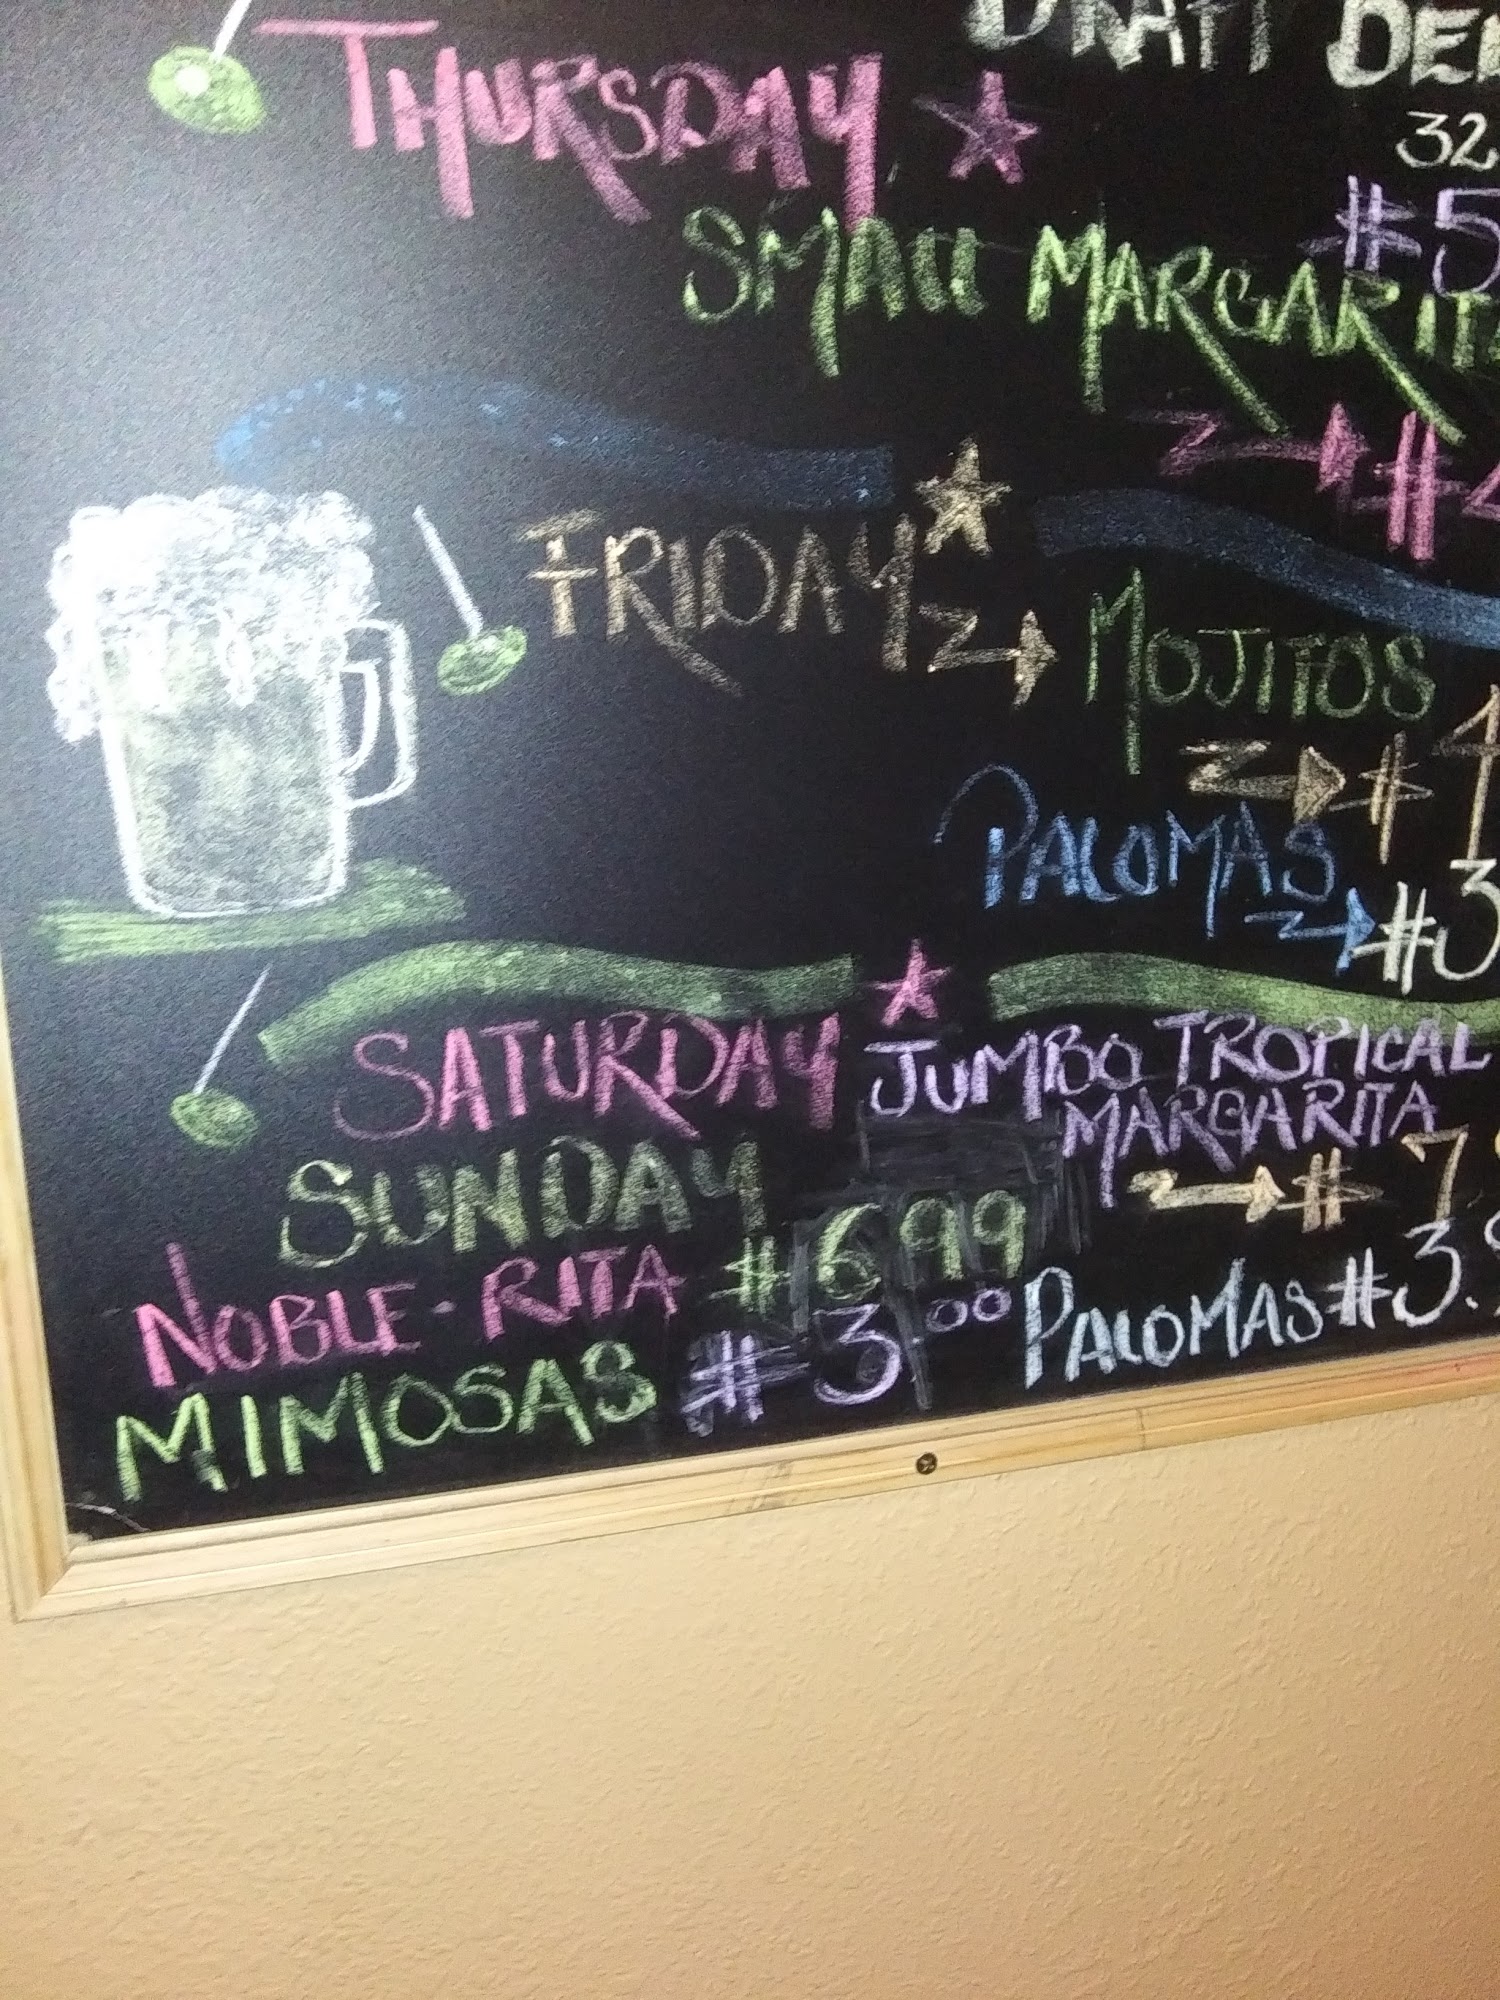 THURSDAY
32
#5
SMALL MARGARIT
#
FRIDAY
MOJITOS
$4
PALOMAS
#3
SATURDAY JUMBO TROPICAL
MARGARITA
$ 7.9
SUNDAY
NOBLE-RITA #6.99
MIMOSAS #3.00 PALOMAS #3.9